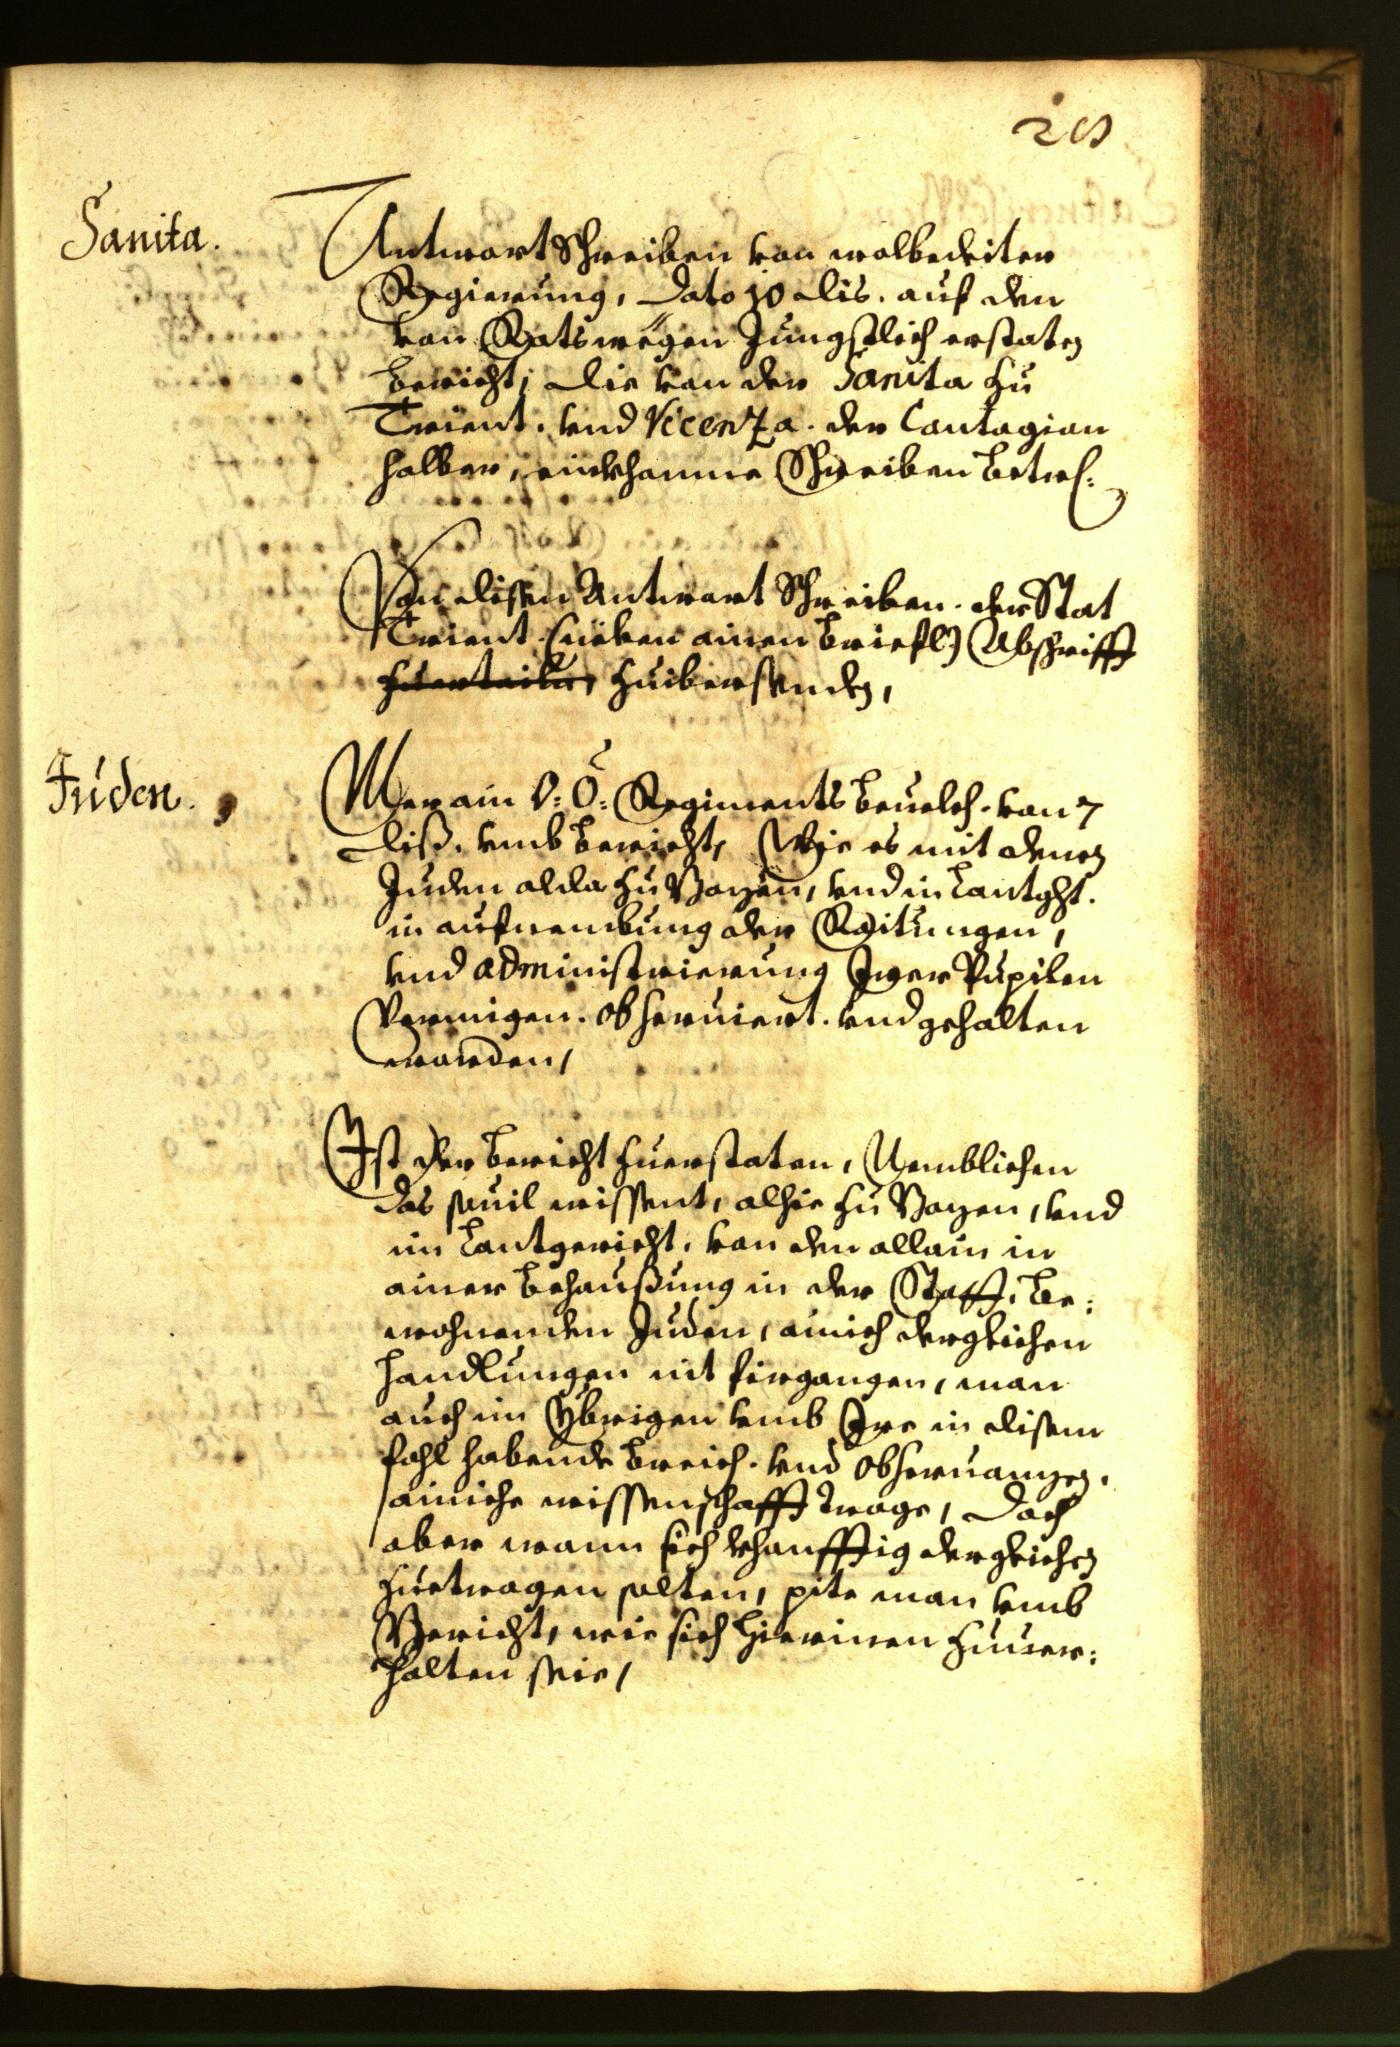 Sanita.
Antwort Schreiben von wolbedeiter
Regierung, dato 10 dis. auf den
von Ratswegen Jungstlich erstaten
bericht, die von der Sanita zu
Trient. vnd Vicenza. der Contagion
halber, einkhomne Schreiben betref:
Von disen Antwort Schreiben. der Stat
Trient (neben ainen briefl) Abschrifft
zuerteiln, zuibersenden,
Juden.
Mer ain O: Ö: Regiments beuelch. von 7
diß. vmb bericht, Wie es mit denen
Juden alda zu Bozen, vnd in Lantght.
in aufnembung der Raitungen,
vnd administrierung Irer Pupilen
Vermigen. obseruiert. vnd gehalten
worden,
Ist der bericht zuerstaten, Nemblichen
das souil wissent, alhie zu Bozen, vnd
im Lantgericht. von den allain in
ainer behaußung in der Statt, be:
wohnenden Juden, ainich dergleichen
handlungen nit firgangen, man
auch im Ybrigen vmb Ire in disem
fahl habende breich. vnd obseruanzen,
ainiche wissenschafft trage, doch
aber wann sich khonfftig dergleichen
zuetragen solten, pite man vmb
Bericht, wie sich hierinen zuuer:
halten seie,